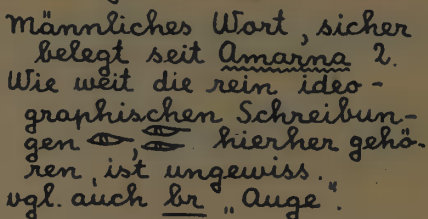 Männliches Wort, sicher
belegt seit Amarna 2.
Wie weit die rein ideo-
graphischen Schreibun-
gen 𓁹, 𓁹𓁹 hierher gehö-
ren, ist ungewiss.
vgl. auch br „Auge".